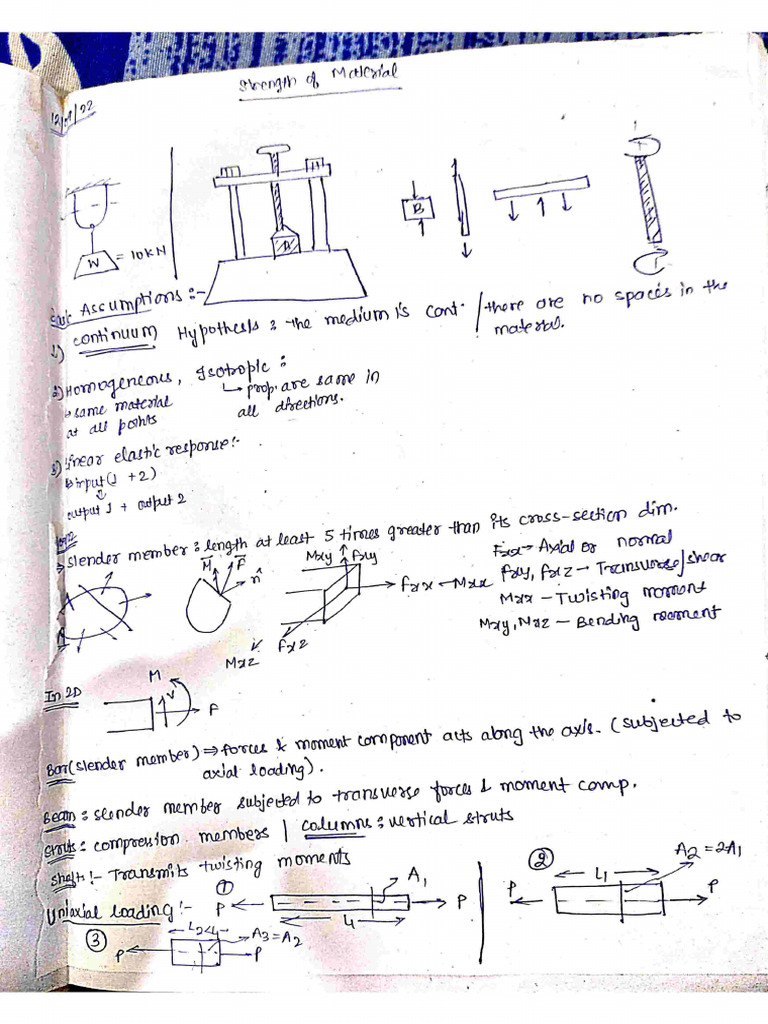 Strength of Material
12/09/22
W = 10KN
B
B
T
T
Basic Assumptions :-
1) Continuum Hypothesis : the medium is cont. / there are no spaces in the
material.
2) Homogeneous, Isotropic :
↳ same material
at all points
↳ prop. are same in
all directions.
3) linear elastic response:-
input (1 + 2)
⇓
output 1 + output 2
→ Slender member : length at least 5 times greater than its cross-section dim.
M F n̂
Mxy Fxy
Fxx - Mxx
Fxz
Mxz
Fxx → Axial or normal
Fxy, Fxz → Transverse/shear
Mxx - Twisting moment
Mxy, Mxz - Bending moment
In 2D
M
V
F
Bar (slender member) ⇒ forces & moment component acts along the axis. (subjected to
axial loading).
Beam : slender member subjected to transverse forces & moment comp.
Struts : compression members | Columns : vertical struts
Shaft :- Transmits twisting moments
Uniaxial loading :-
① P ← A1 → P
L1
② P L1 A2 = 2A1 P
③ P L2<L1 A3 = A2 P